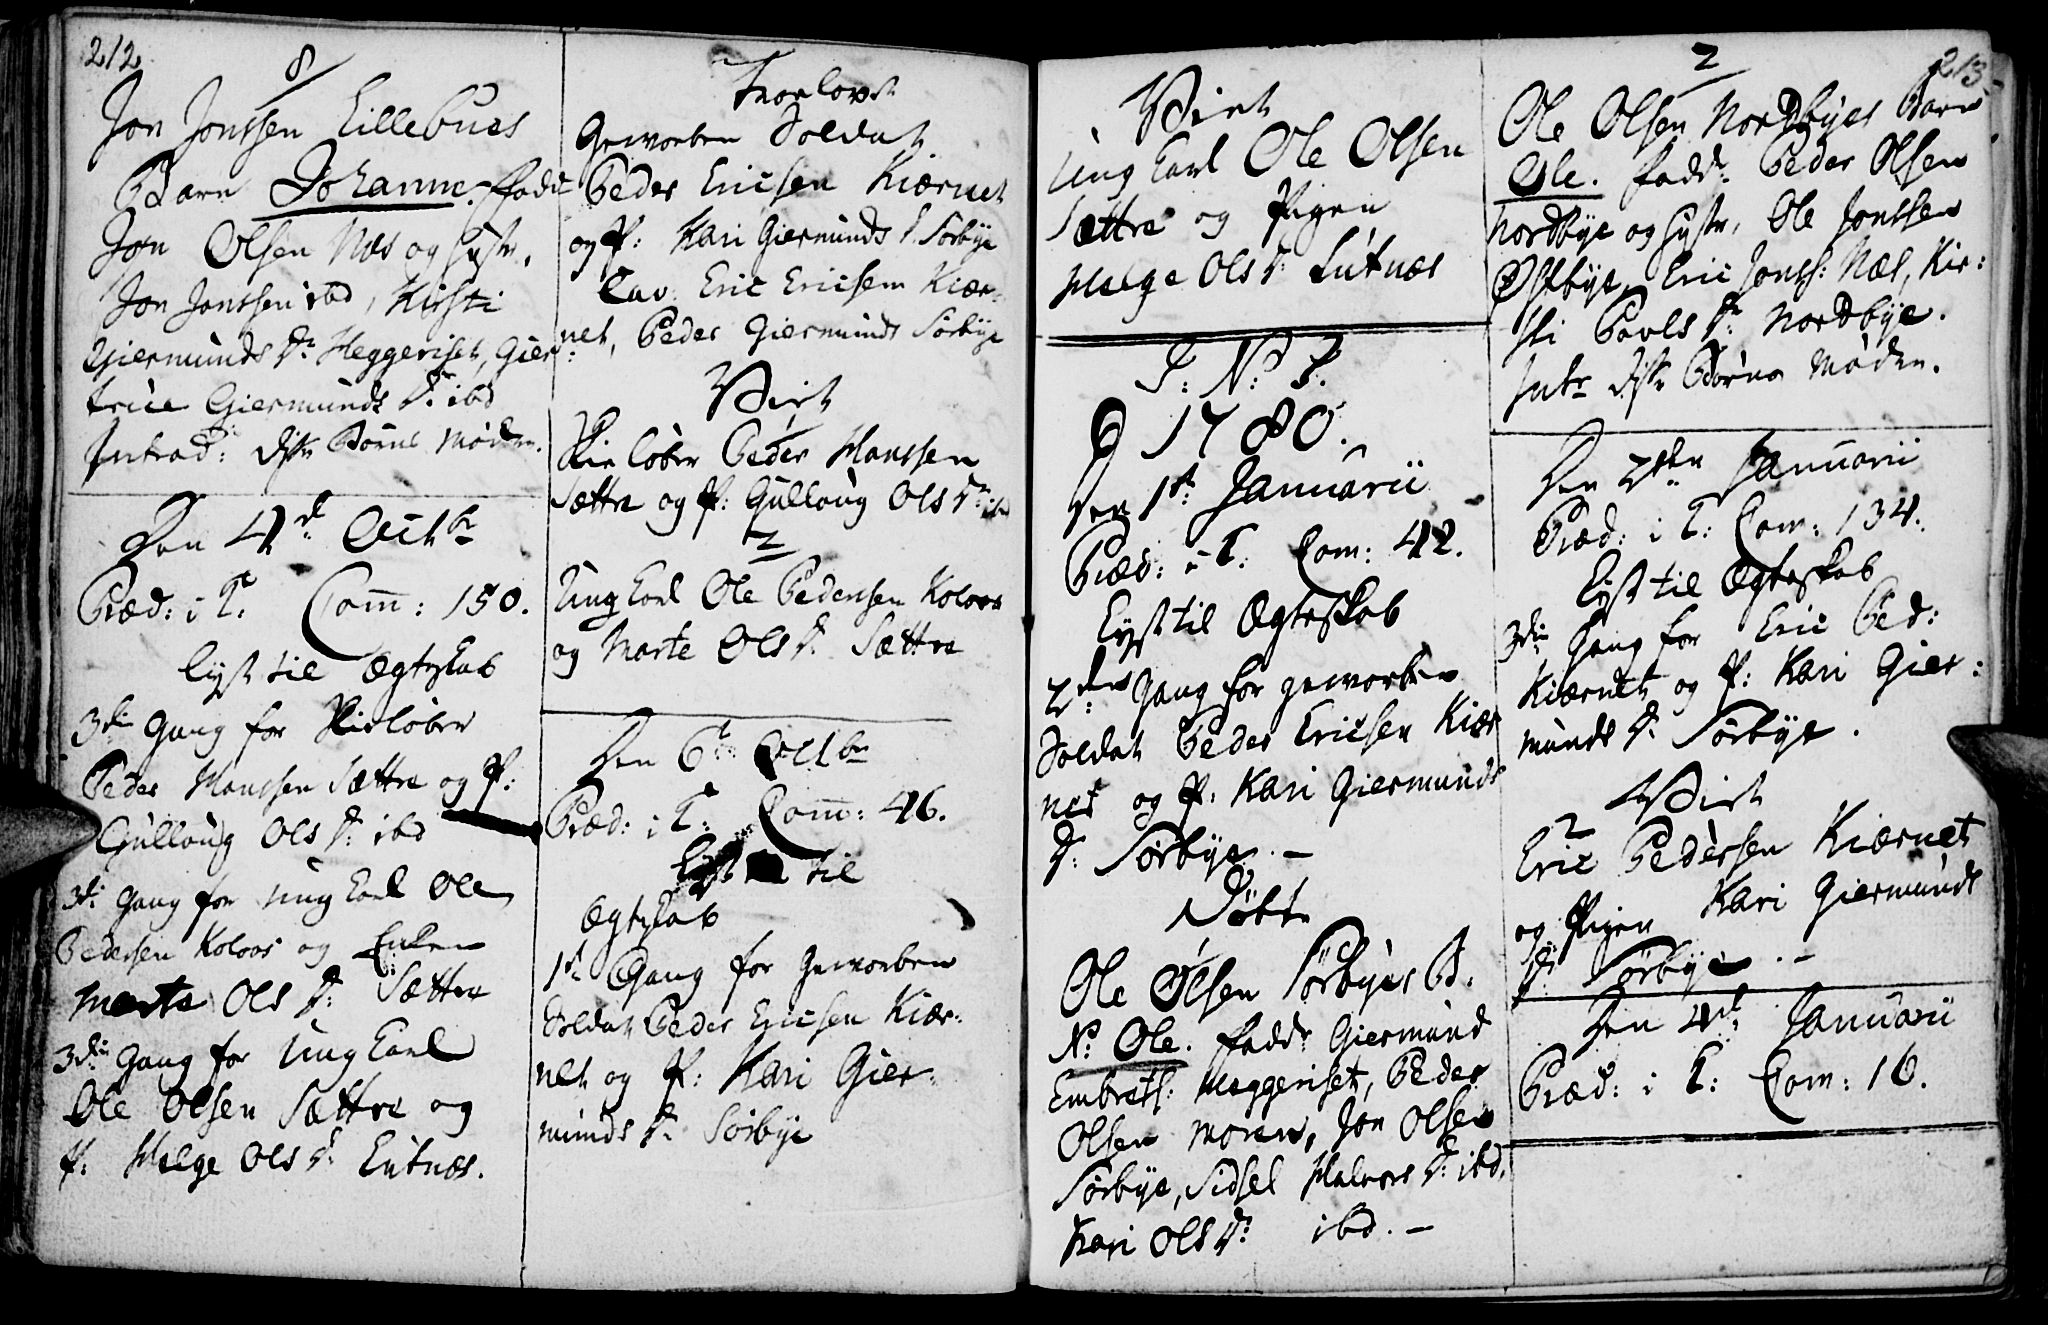 212.
8
Jon Jonssen Lillebues
Barn Johanne. fadd
Jon Olsen Næs og hustr.
Jon Jonssen ibd, Kirsti
Giermunds Dr. Heggeriset, Gier
truce Giermunds D. ibd
Introd: disse Börns Mödre.
Den 4d. Octbr
Præd: i T. Com̄: 150.
lyst til Ægteskab
3die Gang for Skielöber
Peder Hanssen Sættre og P:
Gulloug Ols D: ibd
3di Gang for Ung Karl Ole
Pedersen Koloos og Enken
Marte Ols D: Sættre
3die Gang for Ung Karl
Ole Olsen Sættre og
P. Helge Ols D. Lutnæs.
Troelovet
Geworben Soldat
Peder Ericsen Kiærnet
og P: Kari Giermunds D. Sörbye
Cav. Eric Ericsen Kiær-
net, Peder Giermunds Sörbye
Viet
Skielöber Peder Hanssen
Sættre og P: Gulloug Ols D: ibd
2
Ung Karl Ole Pedersen Koloos
og Marte Ols D. Sættre
Den 6te Octbr
Præd: i T. Com̄: 46.
lyst til
Ægteskab
1ste Gang for Geworben
Soldat Peder Ericsen Kiær-
net og P: Kari Gier-
munds D. Sörbye
213.
Viet
Ung Karl Ole Olsen
Sættre og Pigen
Helge Ols D. Lutnæs
I: N: J.
1780.
Den 1st. Januarii
Præd: i T. Com: 42.
Lyst til Ægteskab
2den Gang for geworben
Soldat Peder Ericsen Kiær
net og P: Kari Giermunds
D: Sörbye. —
Döbt
Ole Olsen Sörbyes B.
N: Ole. fadd: Giermund
Embretss: Heggeriset, Peder
Olsen Moren, Jon Olsen
Sörbye, Sidsel Halvors D: ibd.
Kari Ols D: ibd. —
2
Ole Olsen Nordbyes Barn
Ole. fadd: Peder Olsen
Nordbye og hustr, Ole Jonssen
Østbye, Eric Jonss: Næs, Kir:
sti Povls D. Nordbye.
Intr disse Börns Mödre.
Den 2den Januarii
Præd: i T: Com: 134.
Lyst til Ægteskab
3die Gang for Eric Ped:
Kiærnet og P: Kari Gier:
munds D. Sörbye.
Viet
Eric Pedersen Kiærnet
og Pigen Kari Giermunds
D: Sörbye. —
Den 4de Januarii
Præd: i T: Com: 16.